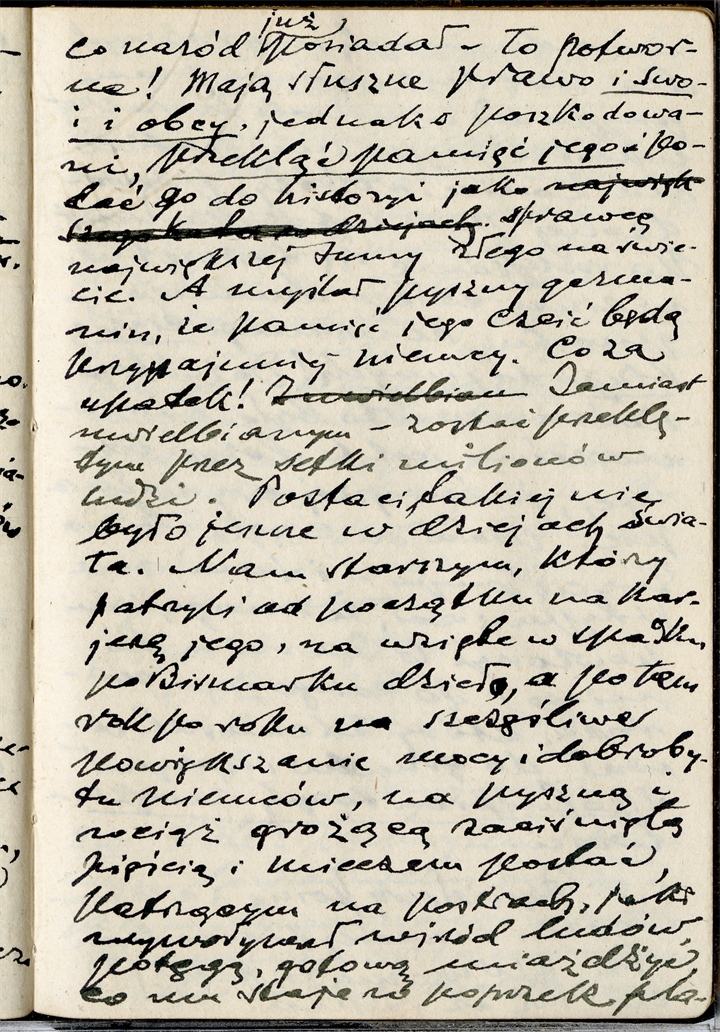 już
co naród posiadał – to potwor-
ne! Mają słuszne prawo i swo-
i i obcy, jednako poszkodowa-
ni, przekląć pamięć jego i po-
dać go do historyi jako najwięk-
szego kata w dziejach. sprawcę
największej sumy złego na świe-
cie. A myślał pyszny germa-
nin, że pamięć jego czcić będą
przynajmniej niemcy. Co za
upadek! Zamiast
uwielbianym – zostać przeklę-
tym przez setki milionów
ludzi. Postaci takiej nie
było jeszcze w dziejach świa-
ta. Nam starszym, którzy
patrzyli od początku na kar-
jerę jego, na wzięte w spadku
po Bismarku dzieło, a potem
rok po roku na szczęśliwe
powiększanie mocy i dobroby-
tu Niemców, na pyszną i
wciąż grożącą zaciśniętą
pięścią i mieczem postać,
patrzącym na postrach, jaki
wywoływał wśród ludów,
potęgą, gotową miażdżyć
co mu staje w poprzek pla-